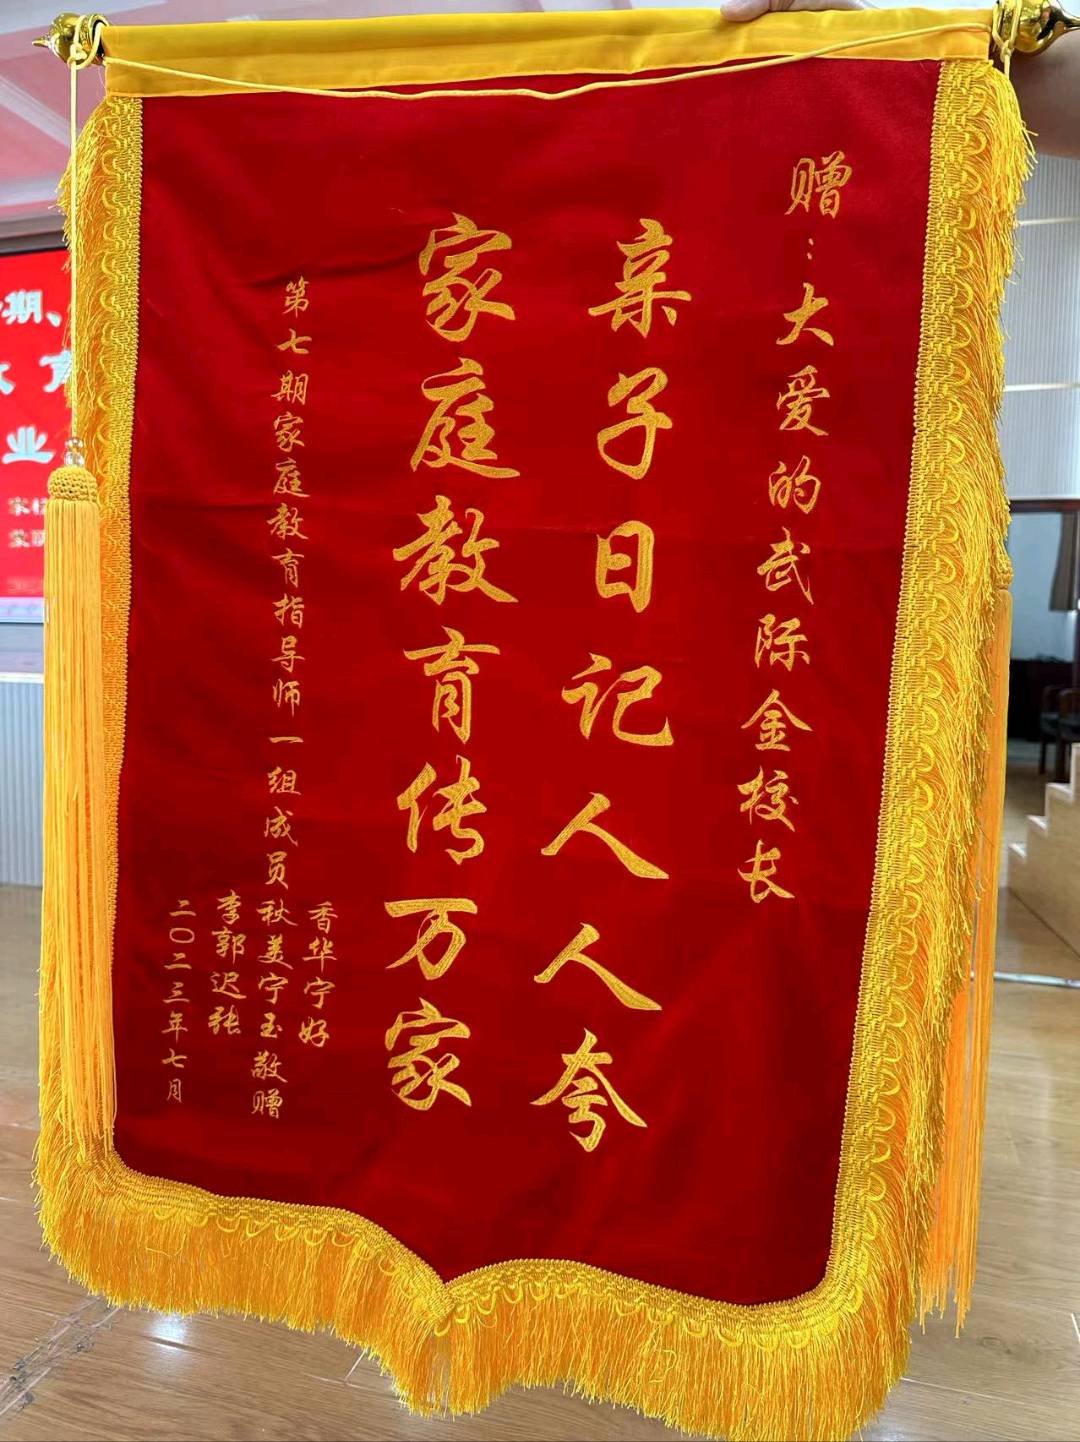 赠：大爱的武际金校长
亲子日记人人夸
家庭教育传万家
第七期家庭教育指导师一组成员
李秋香
郭美华
迟宁宁
张玉好
敬赠
二〇二三年七月
期、
业